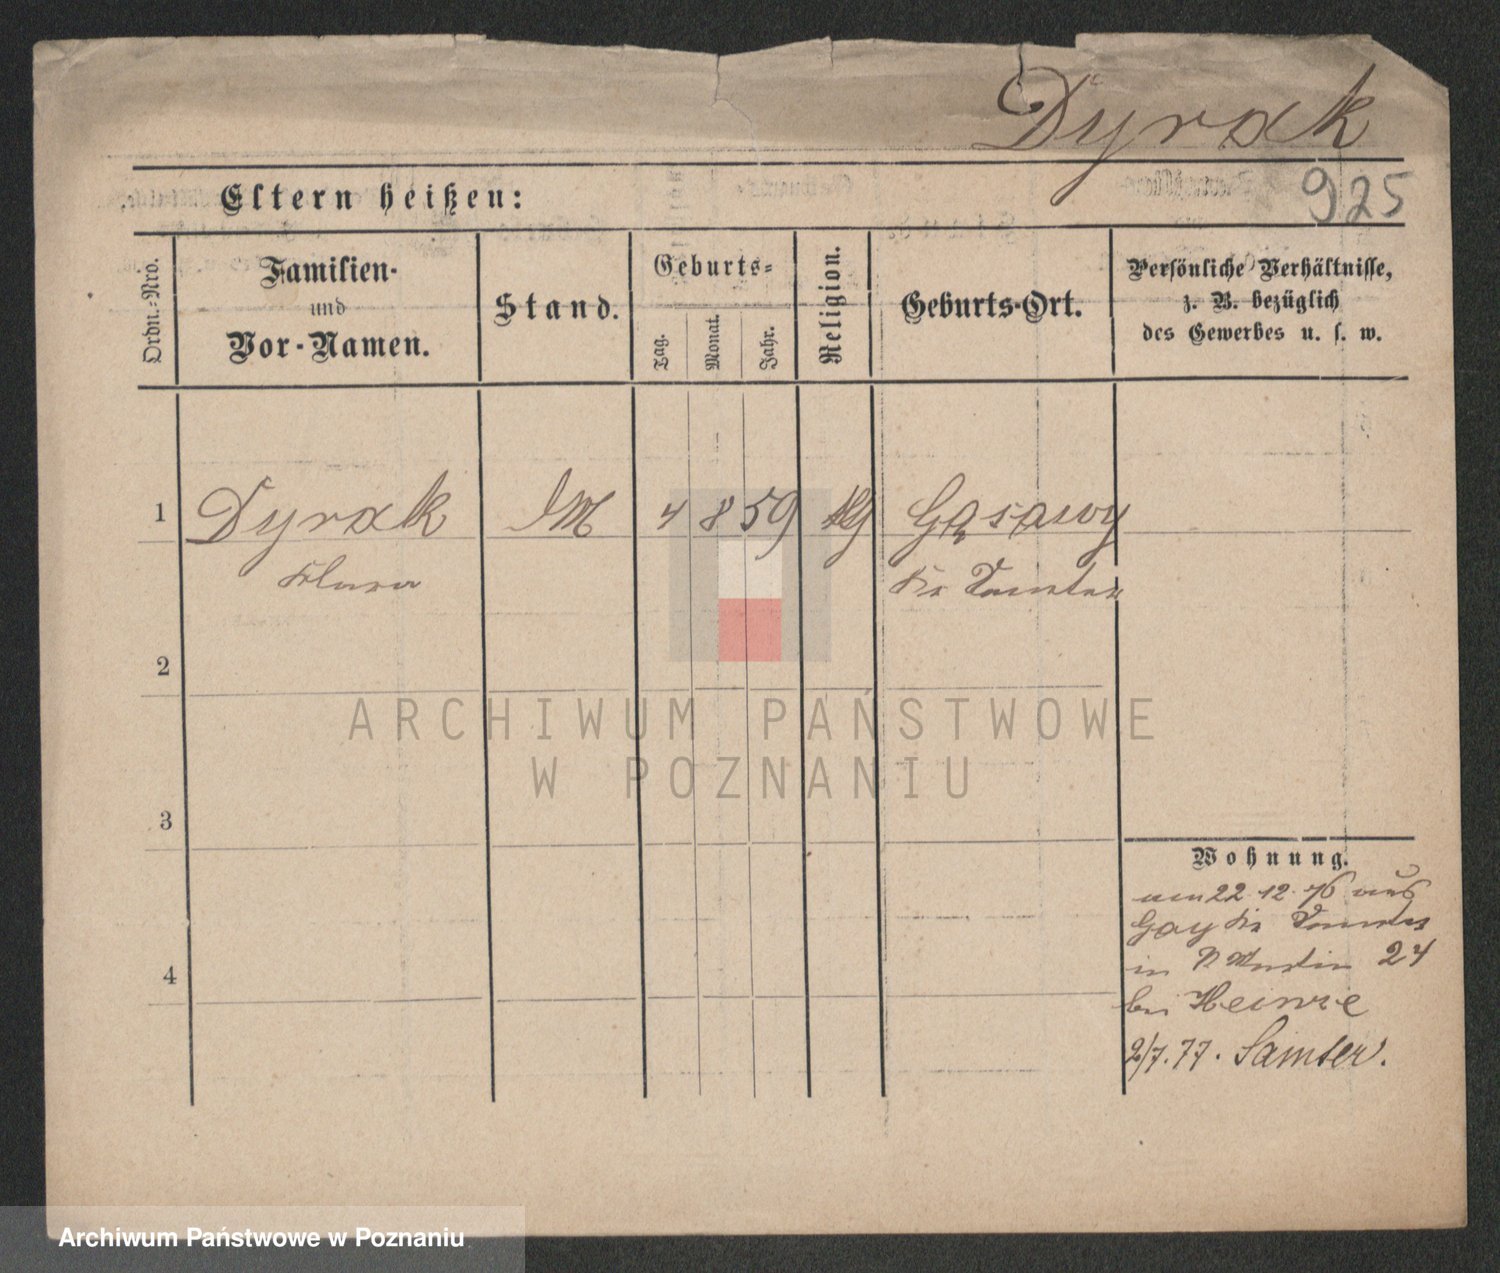 Dyrak
925
Eltern heißen:
Ordn.-Nro.
Familien-
und
Vor-Namen.
Stand.
Geburts-
Tag.
Monat.
Jahr.
Religion.
Geburts-Ort.
Persönliche Verhältnisse,
z. B. bezüglich
des Gewerbes u. s. w.
1 Dyrak 4 8 59 Gąsawy
Klara Kr Samter
2
3
4
ARCHIWUM PAŃSTWOWE
W POZNANIU
Wohnung.
am 22 12 76 aus
Gay Kr Samter
in Martin 24
bei Heinze
2/7. 77. Samter.
Archiwum Państwowe w Poznaniu